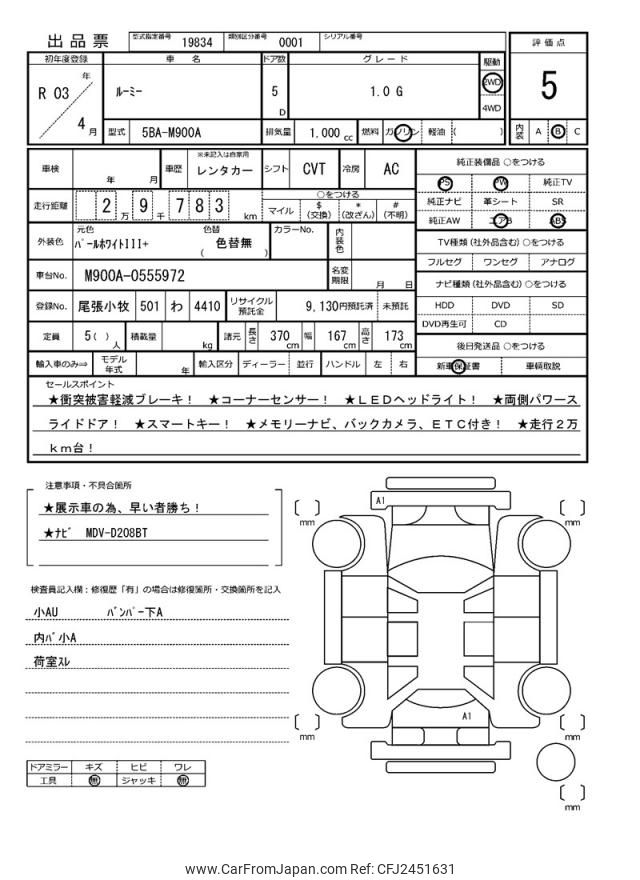 出品票 型式指定番号 19834 類別区分番号 0001 シリアル番号
評価点
5
内装 A B C
初年度登録 車名 ドア数 グレード 駆動
R 03 年 4 月 ルーミー 5 D 1.0 G 2WD
4WD
型式 5BA-M900A 排気量 1.000 cc 燃料 ガソリン 軽油 ( )
車検 年 月 車歴 ※未記入は自家用 レンタカー シフト CVT 冷房 AC
走行距離 2 万 9 千 7 8 3 km ○をつける
マイル $(交換) *(改ざん) #(不明)
外装色 元色 パールホワイトIII+ 色替 色替無 ( ) カラーNo. 内装色
車台No. M900A-0555972 名変期限 月 日
登録No. 尾張小牧 501 わ 4410 リサイクル預託金 9,130円預託済 未預託
定員 5( ) 人 積載量 kg 諸元 長さ 370 cm 幅 167 cm 高さ 173 cm
輸入車のみ⇒ モデル年式 年 輸入区分 ディーラー 並行 ハンドル 左 右
純正装備品 ○をつける
PS PW 純正TV
純正ナビ 革シート SR
純正AW エアB ABS
TV種類(社外品含む)○をつける
フルセグ ワンセグ アナログ
ナビ種類(社外品含む)○をつける
HDD DVD SD
DVD再生可 CD
後日発送品 ○をつける
新車保証書 車輌取説
セールスポイント
★衝突被害軽減ブレーキ! ★コーナーセンサー! ★LEDヘッドライト! ★両側パワース
ライドドア! ★スマートキー! ★メモリーナビ、バックカメラ、ETC付き! ★走行2万
km台!
注意事項・不具合箇所
★展示車の為、早い者勝ち!
★ナビ MDV-D208BT
検査員記入欄:修復歴「有」の場合は修復箇所・交換箇所を記入
小AU バンパー下A
内バ小A
荷室スレ
ドアミラー キズ ヒビ ワレ
工具 無 ジャッキ 無
A1
[ ] mm
[ ] mm
A1
[ ] mm
[ ] mm
[ ] mm
www.CarFromJapan.com Ref: CFJ2451631